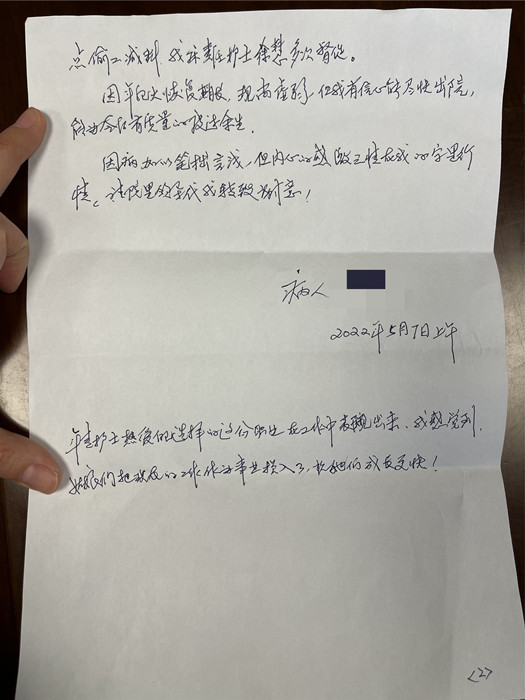 点偷工减料，我称责任护士徐慧多次督促。
因年纪大恢复期长，现尚虚弱，但我有信心能尽快出院，
能为今后有质量的度过余生。
因病加以笔拙言浅，但内心的感激之情在我的字里行
情。请院里领导代我转致谢意！
病人
2022年5月7日上午
年青护士热爱他们选择的这份职业在工作中表现出来，我感觉到
姑娘们把放在的工作作为事业投入了，较她们成长更快！
<2>